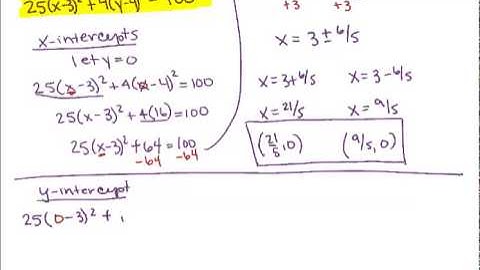 25(x-3)² + 4(y-4)² = 100
x-intercepts
let y=0
25(x-3)² + 4(0-4)² = 100
25(x-3)² + 4(16) = 100
25(x-3)² + 64 = 100
-64 -64
+3 +3
x = 3 ± 6/5
x = 3+6/5 x = 3-6/5
x = 21/5 x = 9/5
(21/5, 0) (9/5, 0)
y-intercept
25(0-3)² +